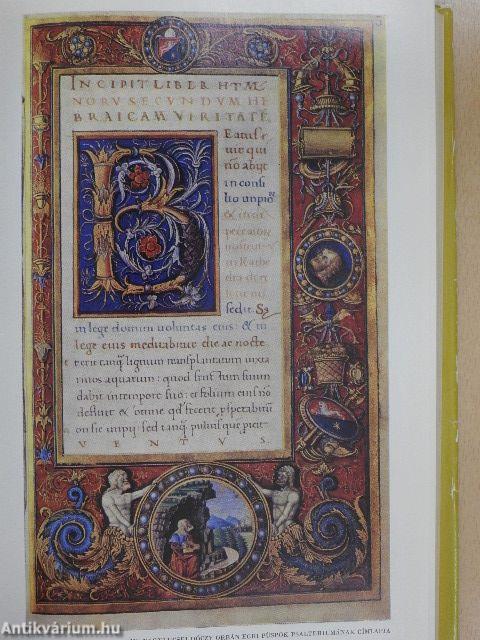 INCIPIT LIBER HYM
NORU SECUNDUM HE
BRAICAM VIRITATE
Beatus
vir qui
nō abijt
in consi
lio impio
& in
cathe
sedit. Se
in lege domini voluntas eius: & in
lege eius meditabitur die ac nocte
erit tanq̄ lignum transplantatum iuxta
rivos aquarum: quod fructum suum
dabit intempore suo: et folium eius nō
defluet & omne qd fecerit, prosperabitur
on sic impij: sed tanq̄ pulvis quē proicit
VENTUS
ORBÁN EGRI PÜSPÖK PSALTERIUMÁNAK CÍMLAPJA
Antikvárium.hu